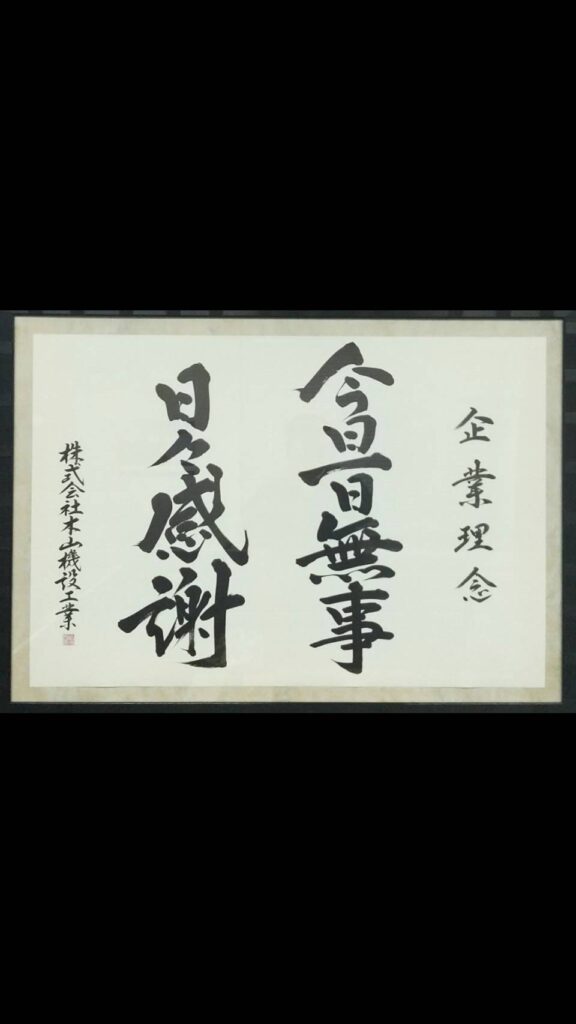 企業理念
今日一日無事
日々感謝
株式会社木山機設工業